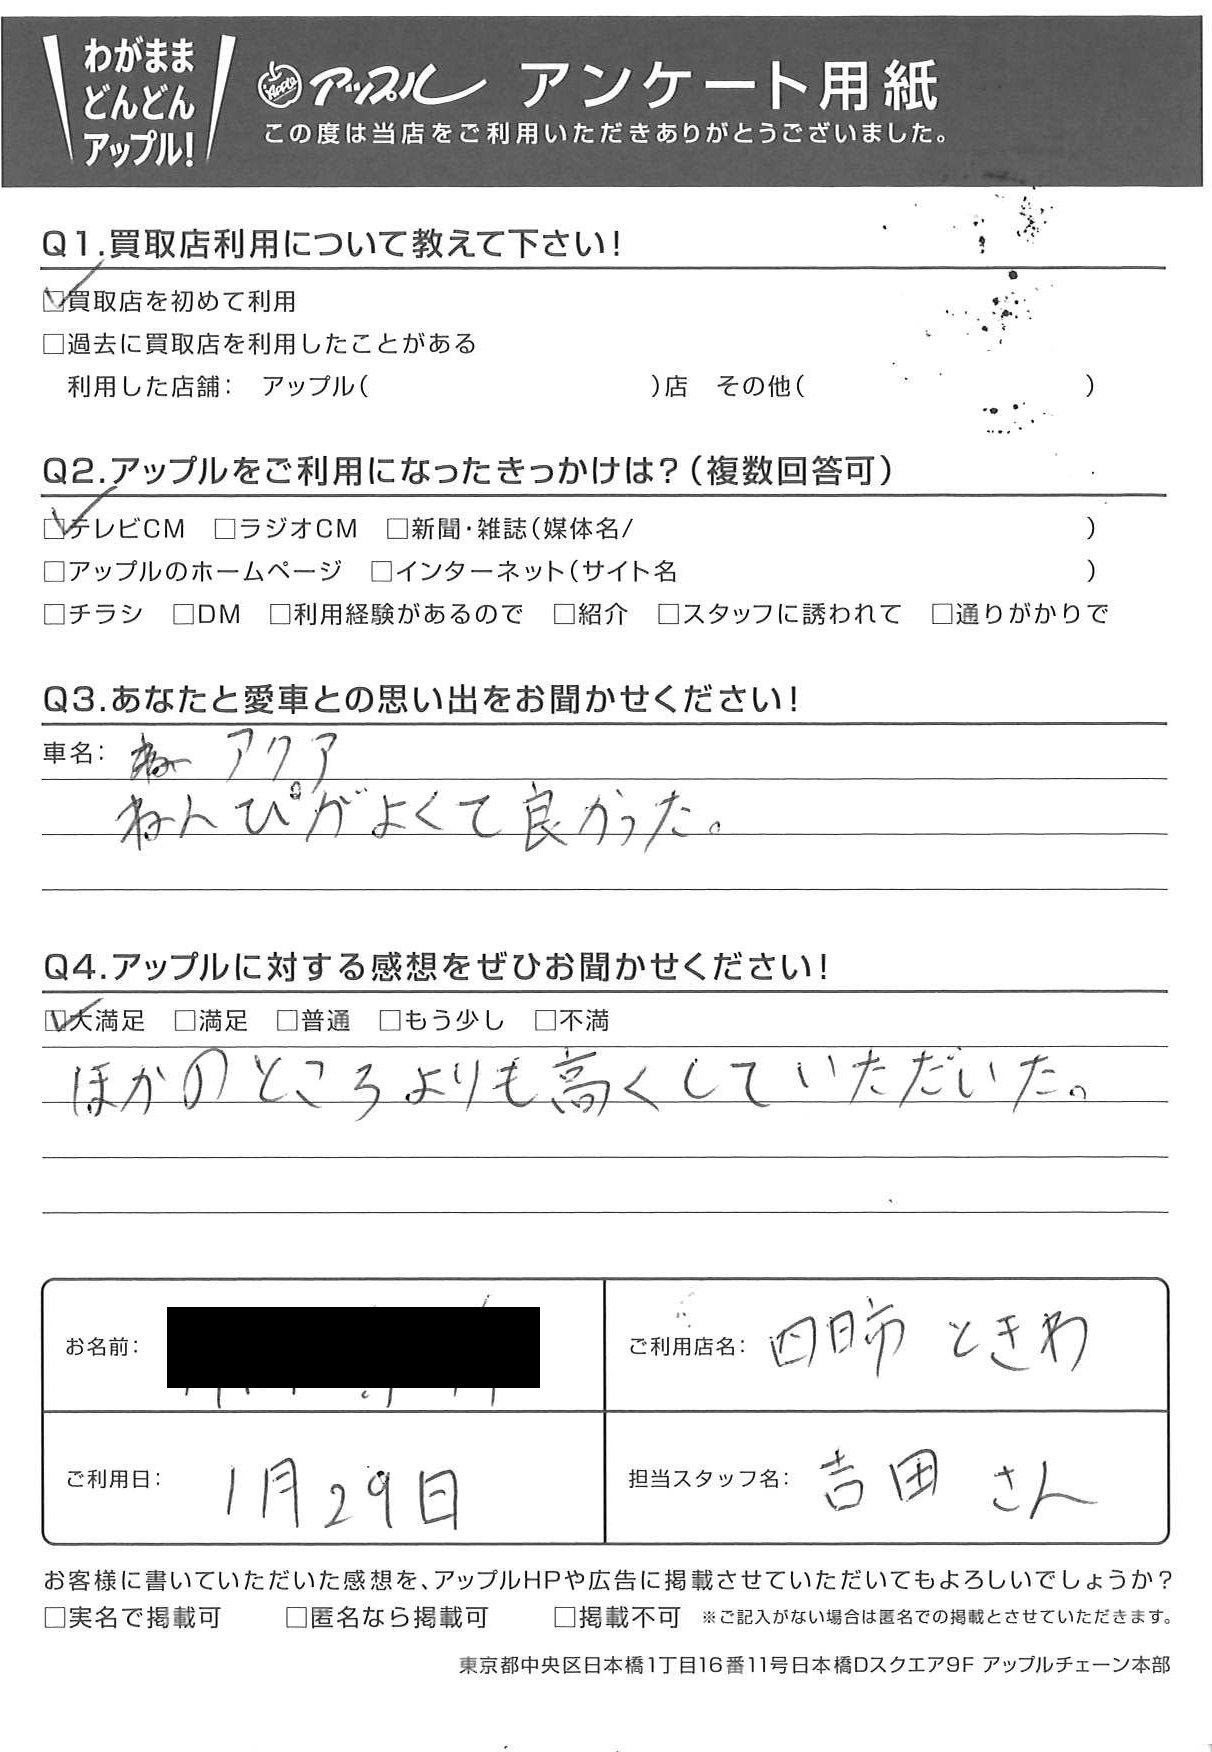 わがまま
どんどん
アップル!
Apple アップル アンケート用紙
この度は当店をご利用いただきありがとうございました。
Q1.買取店利用について教えて下さい!
☑買取店を初めて利用
□過去に買取店を利用したことがある
利用した店舗: アップル( )店 その他( )
Q2.アップルをご利用になったきっかけは?(複数回答可)
☑テレビCM □ラジオCM □新聞・雑誌(媒体名/ )
□アップルのホームページ □インターネット(サイト名 )
□チラシ □DM □利用経験があるので □紹介 □スタッフに誘われて □通りがかりで
Q3.あなたと愛車との思い出をお聞かせください!
車名: アクア
ねんぴがよくて良かった。
Q4.アップルに対する感想をぜひお聞かせください!
☑大満足 □満足 □普通 □もう少し □不満
ほかのところよりも高くしていただいた。
お名前:
ご利用店名: 四日市 ときわ
ご利用日: 1月29日
担当スタッフ名: 吉田 さん
お客様に書いていただいた感想を、アップルHPや広告に掲載させていただいてもよろしいでしょうか?
□実名で掲載可 □匿名なら掲載可 □掲載不可 ※ご記入がない場合は匿名での掲載とさせていただきます。
東京都中央区日本橋1丁目16番11号日本橋Dスクエア9F アップルチェーン本部